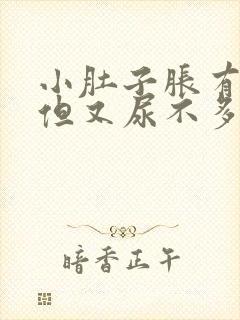 小肚子胀有
但又尿不多
暗香正午